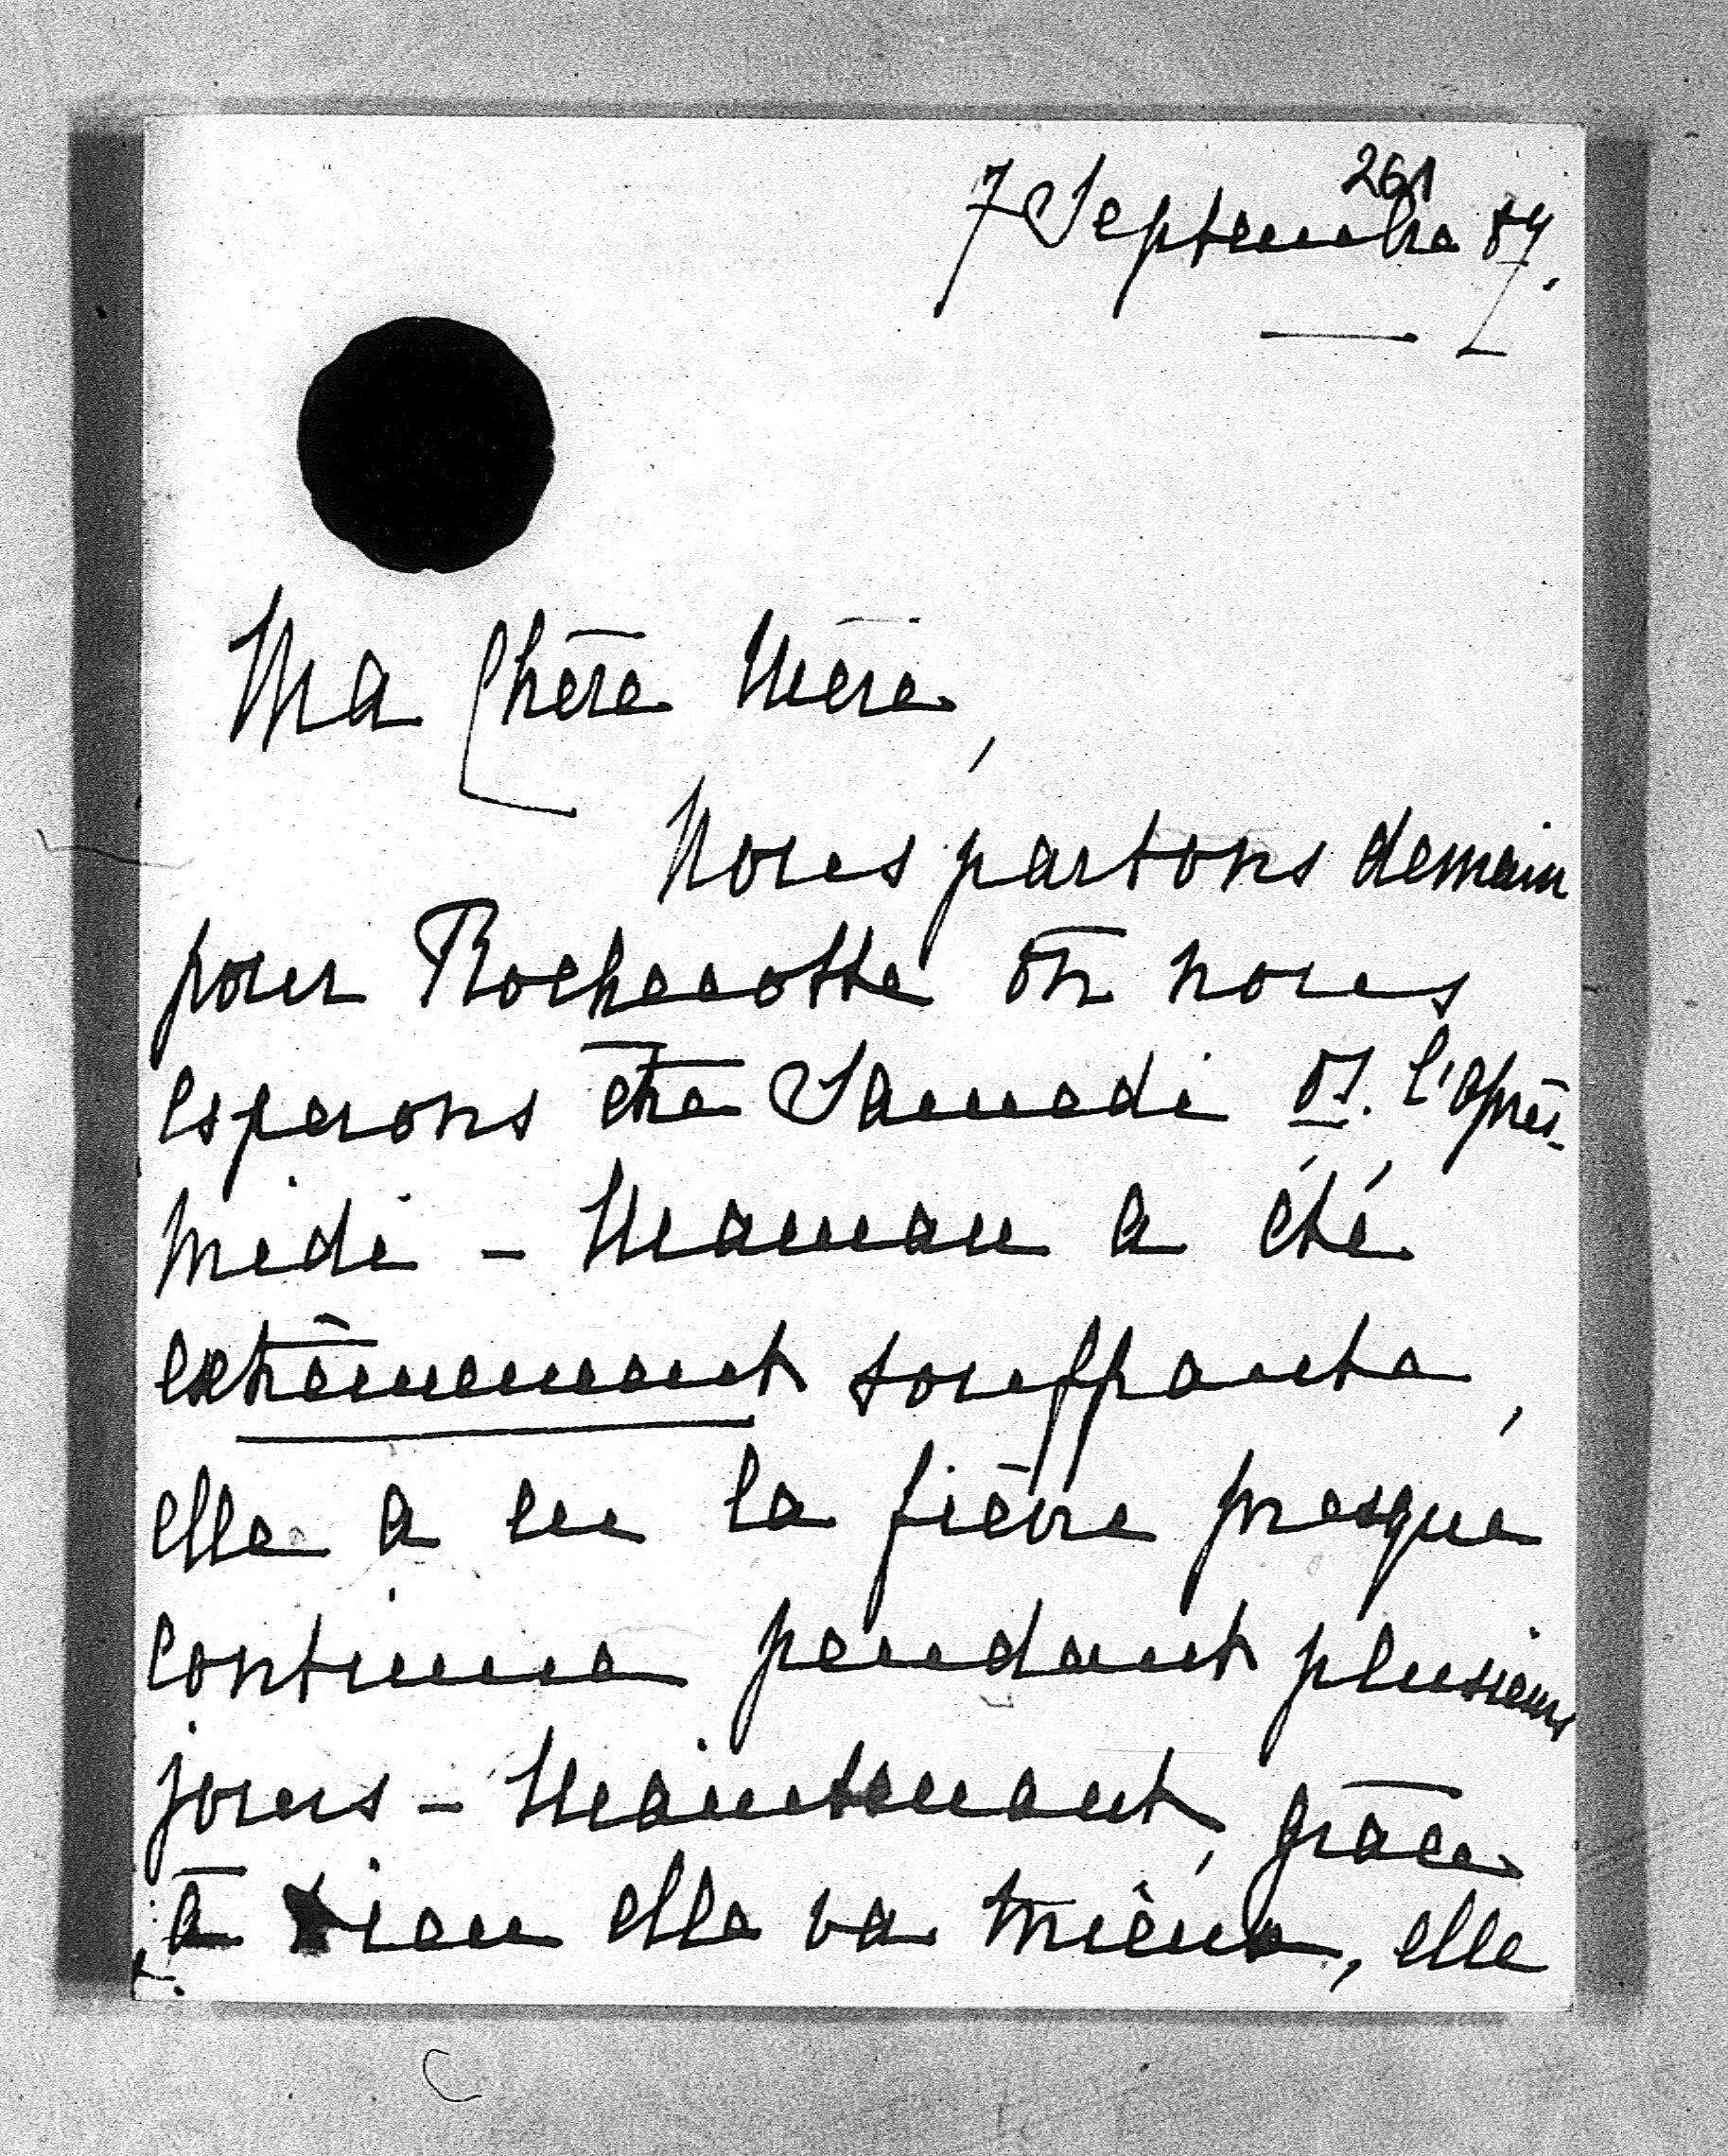 261
7 Septembre 87.
Ma Chère Mère,
Nous partons demain
pour Rochecotte où nous
esperons être Samedi ds. l'après-
midi - Maman a été
extrêmement souffrante,
elle a eu la fièvre presque
continue pendant plusieurs
jours - Maintenant, grâce
à Dieu elle va mieux, elle